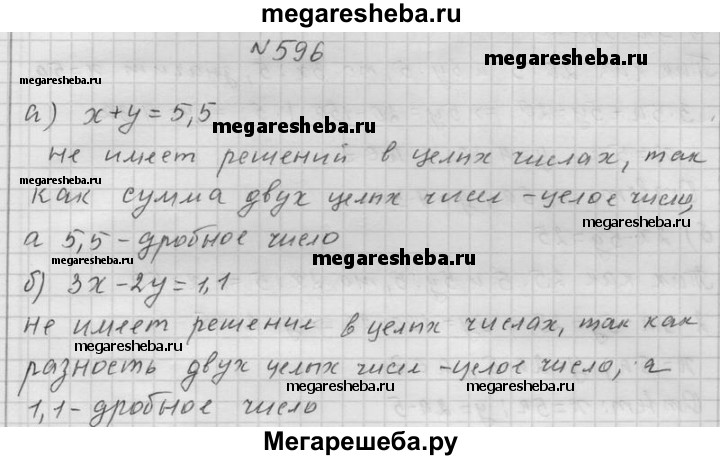 megaresheba.ru
№596
megaresheba.ru
megaresheba.ru
а) x+y=5,5
megaresheba.ru
не имеет решений в целых числах, так
megaresheba.ru
как сумма двух целых чисел - целое число,
megaresheba.ru
а 5,5 - дробное число
megaresheba.ru
megaresheba.ru
б) 3x-2y=1,1
megaresheba.ru
не имеет решении в целых числах, так как
megaresheba.ru
разность двух целых чисел - целое число, а
megaresheba.ru
megaresheba.ru
1,1 - дробное число
Мегарешеба.ру